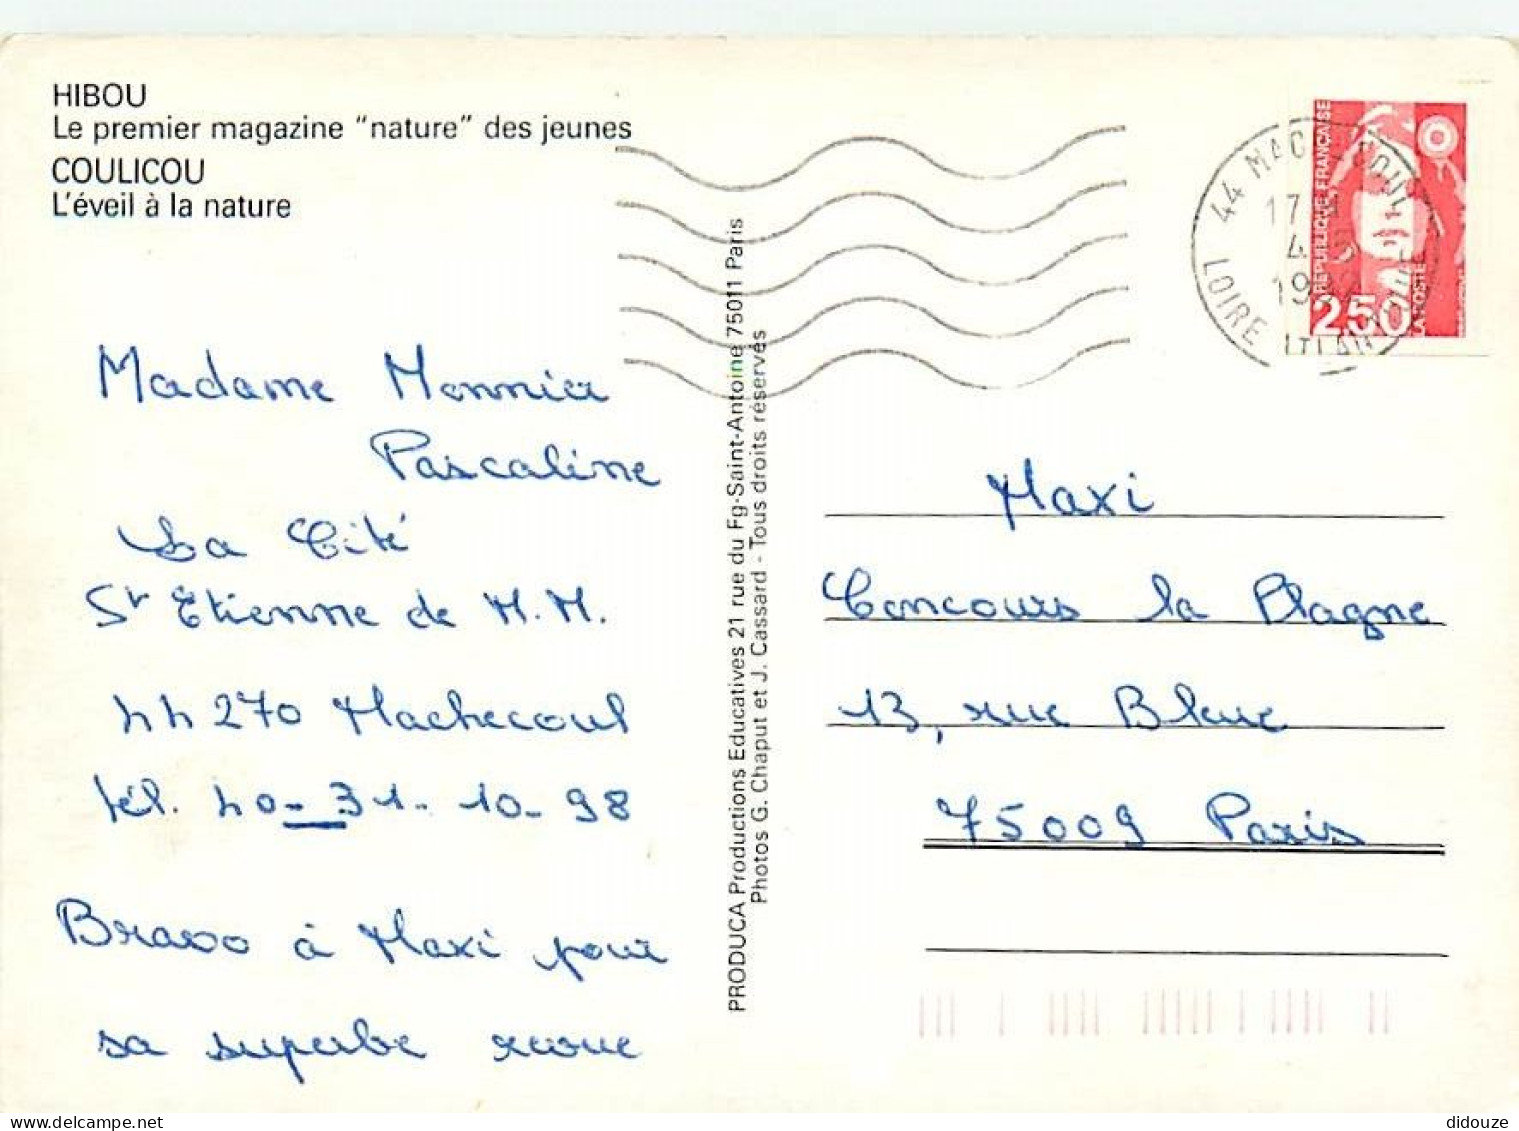 HIBOU
Le premier magazine "nature" des jeunes
COULICOU
L'éveil à la nature
Madame Monnier
Pascaline
La Cité
St Etienne de M.M.
44270 Machecoul
tél. 40-31-10-98
Bravo à Maxi pour
sa superbe revue
PRODUCA Productions Educatives 21 rue du Fg-Saint-Antoine 75011 Paris
Photos G. Chaput et J. Cassard - Tous droits réservés
REPUBLIQUE FRANÇAISE
2,50
LA POSTE
44 MACHECOUL
17
4
LOIRE ATLANTIQUE
Maxi
Concours la Blagne
13, rue Bleue
75009 Paris
didouze